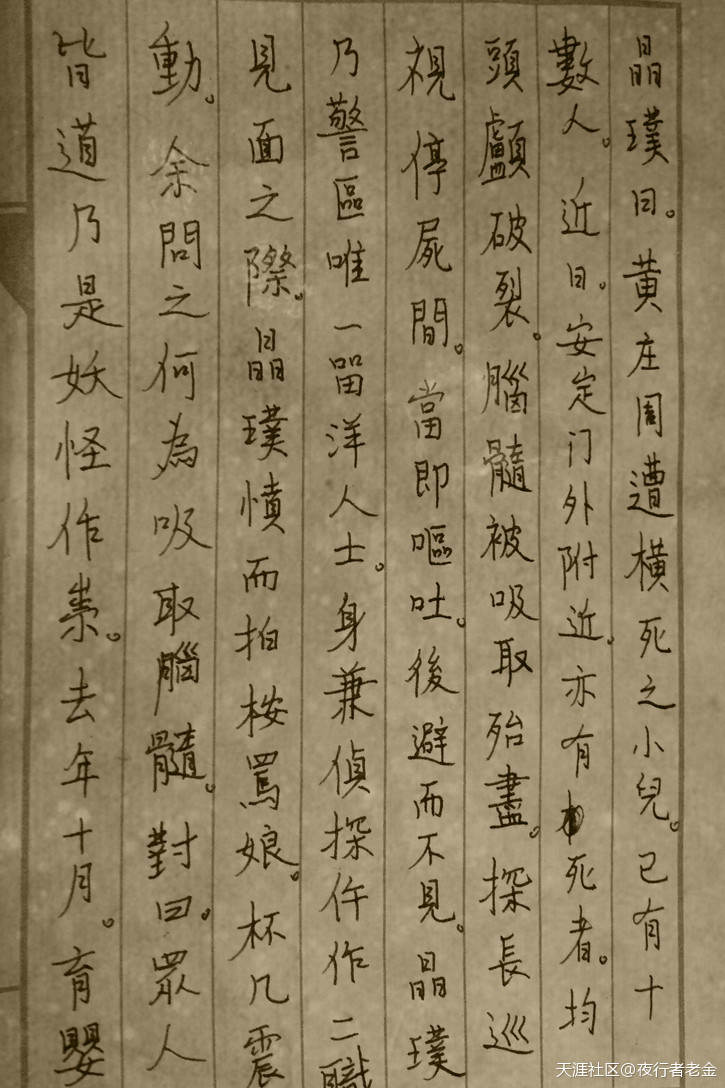 晶璞曰。黄庄周遭橫死之小兒。已有十
數人。近日。安定门外附近。亦有死者。均
頭顱破裂。腦髓被吸取殆盡。探長巡
視停屍間。當即嘔吐。後避而不見。晶璞
乃警區唯一留洋人士。身兼偵探仵作二職
見面之際。晶璞憤而拍桉罵娘。杯几震
動。余問之何為吸取腦髓。對曰。眾人
皆道乃是妖怪作祟。去年十月。育嬰
天涯社区@夜行者老金